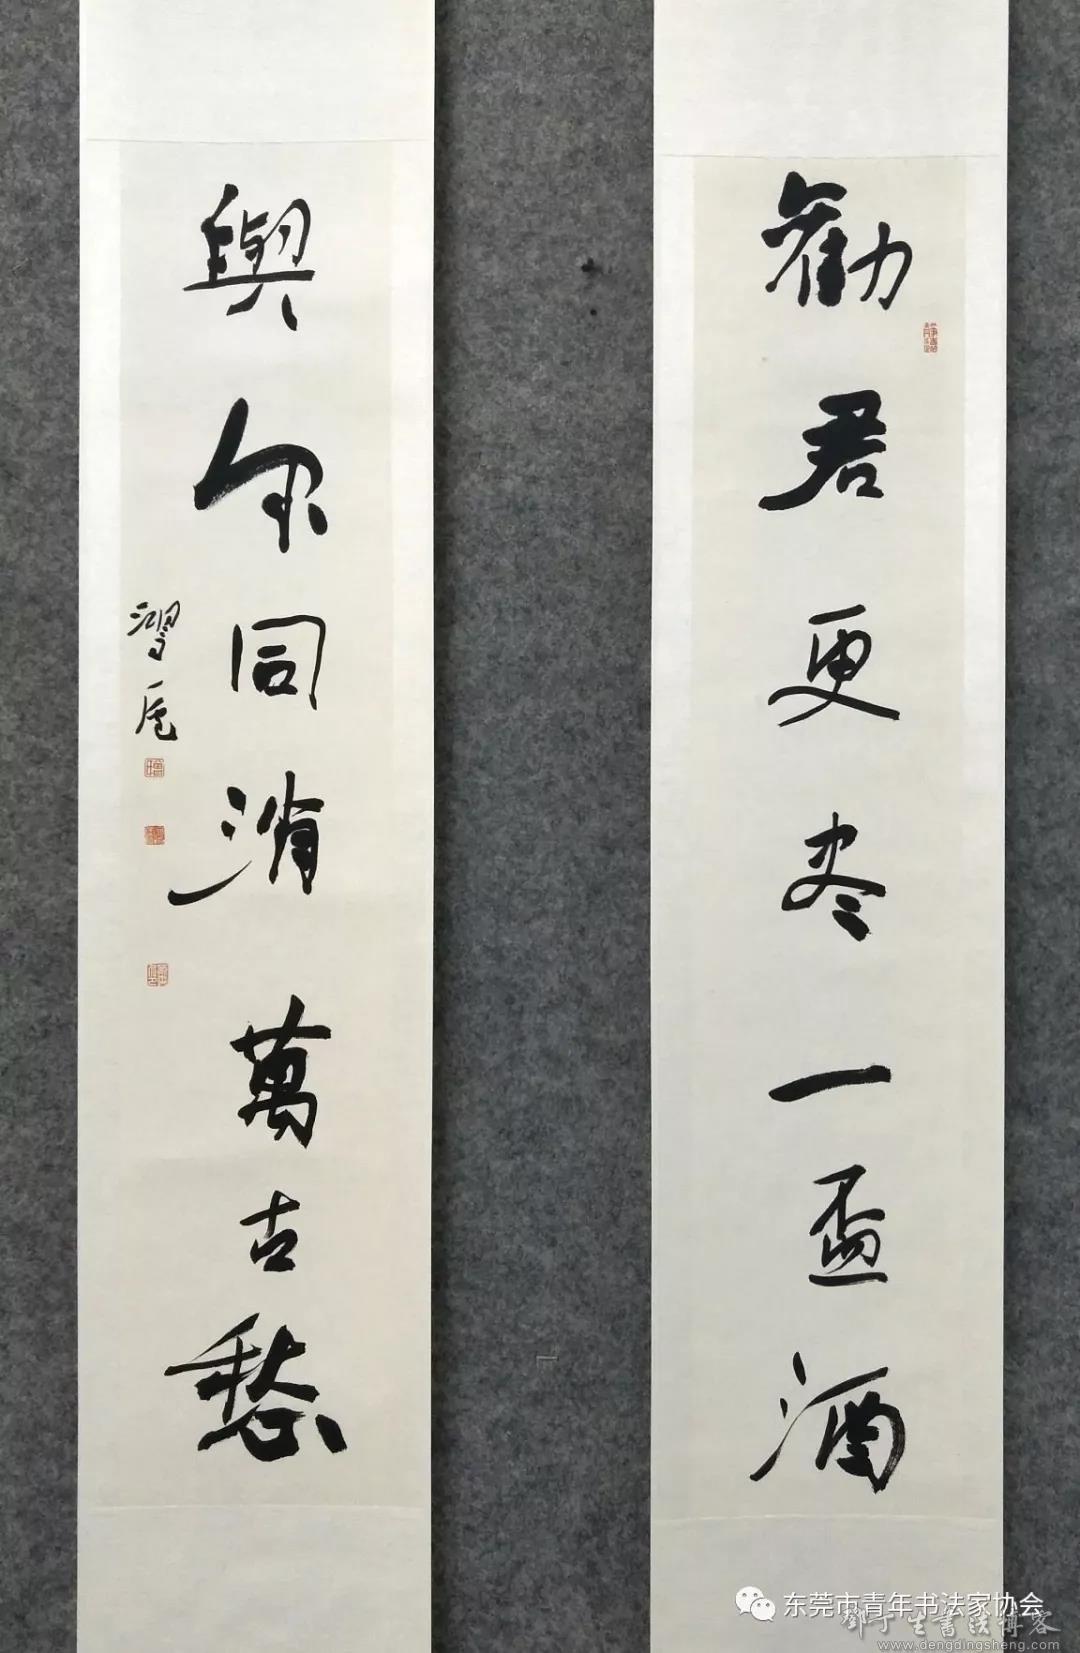 勸君更盡一盃酒
與尔同消萬古愁
东莞市青年书法家协会
鄧丁生書法博客
www.dengdingsheng.com